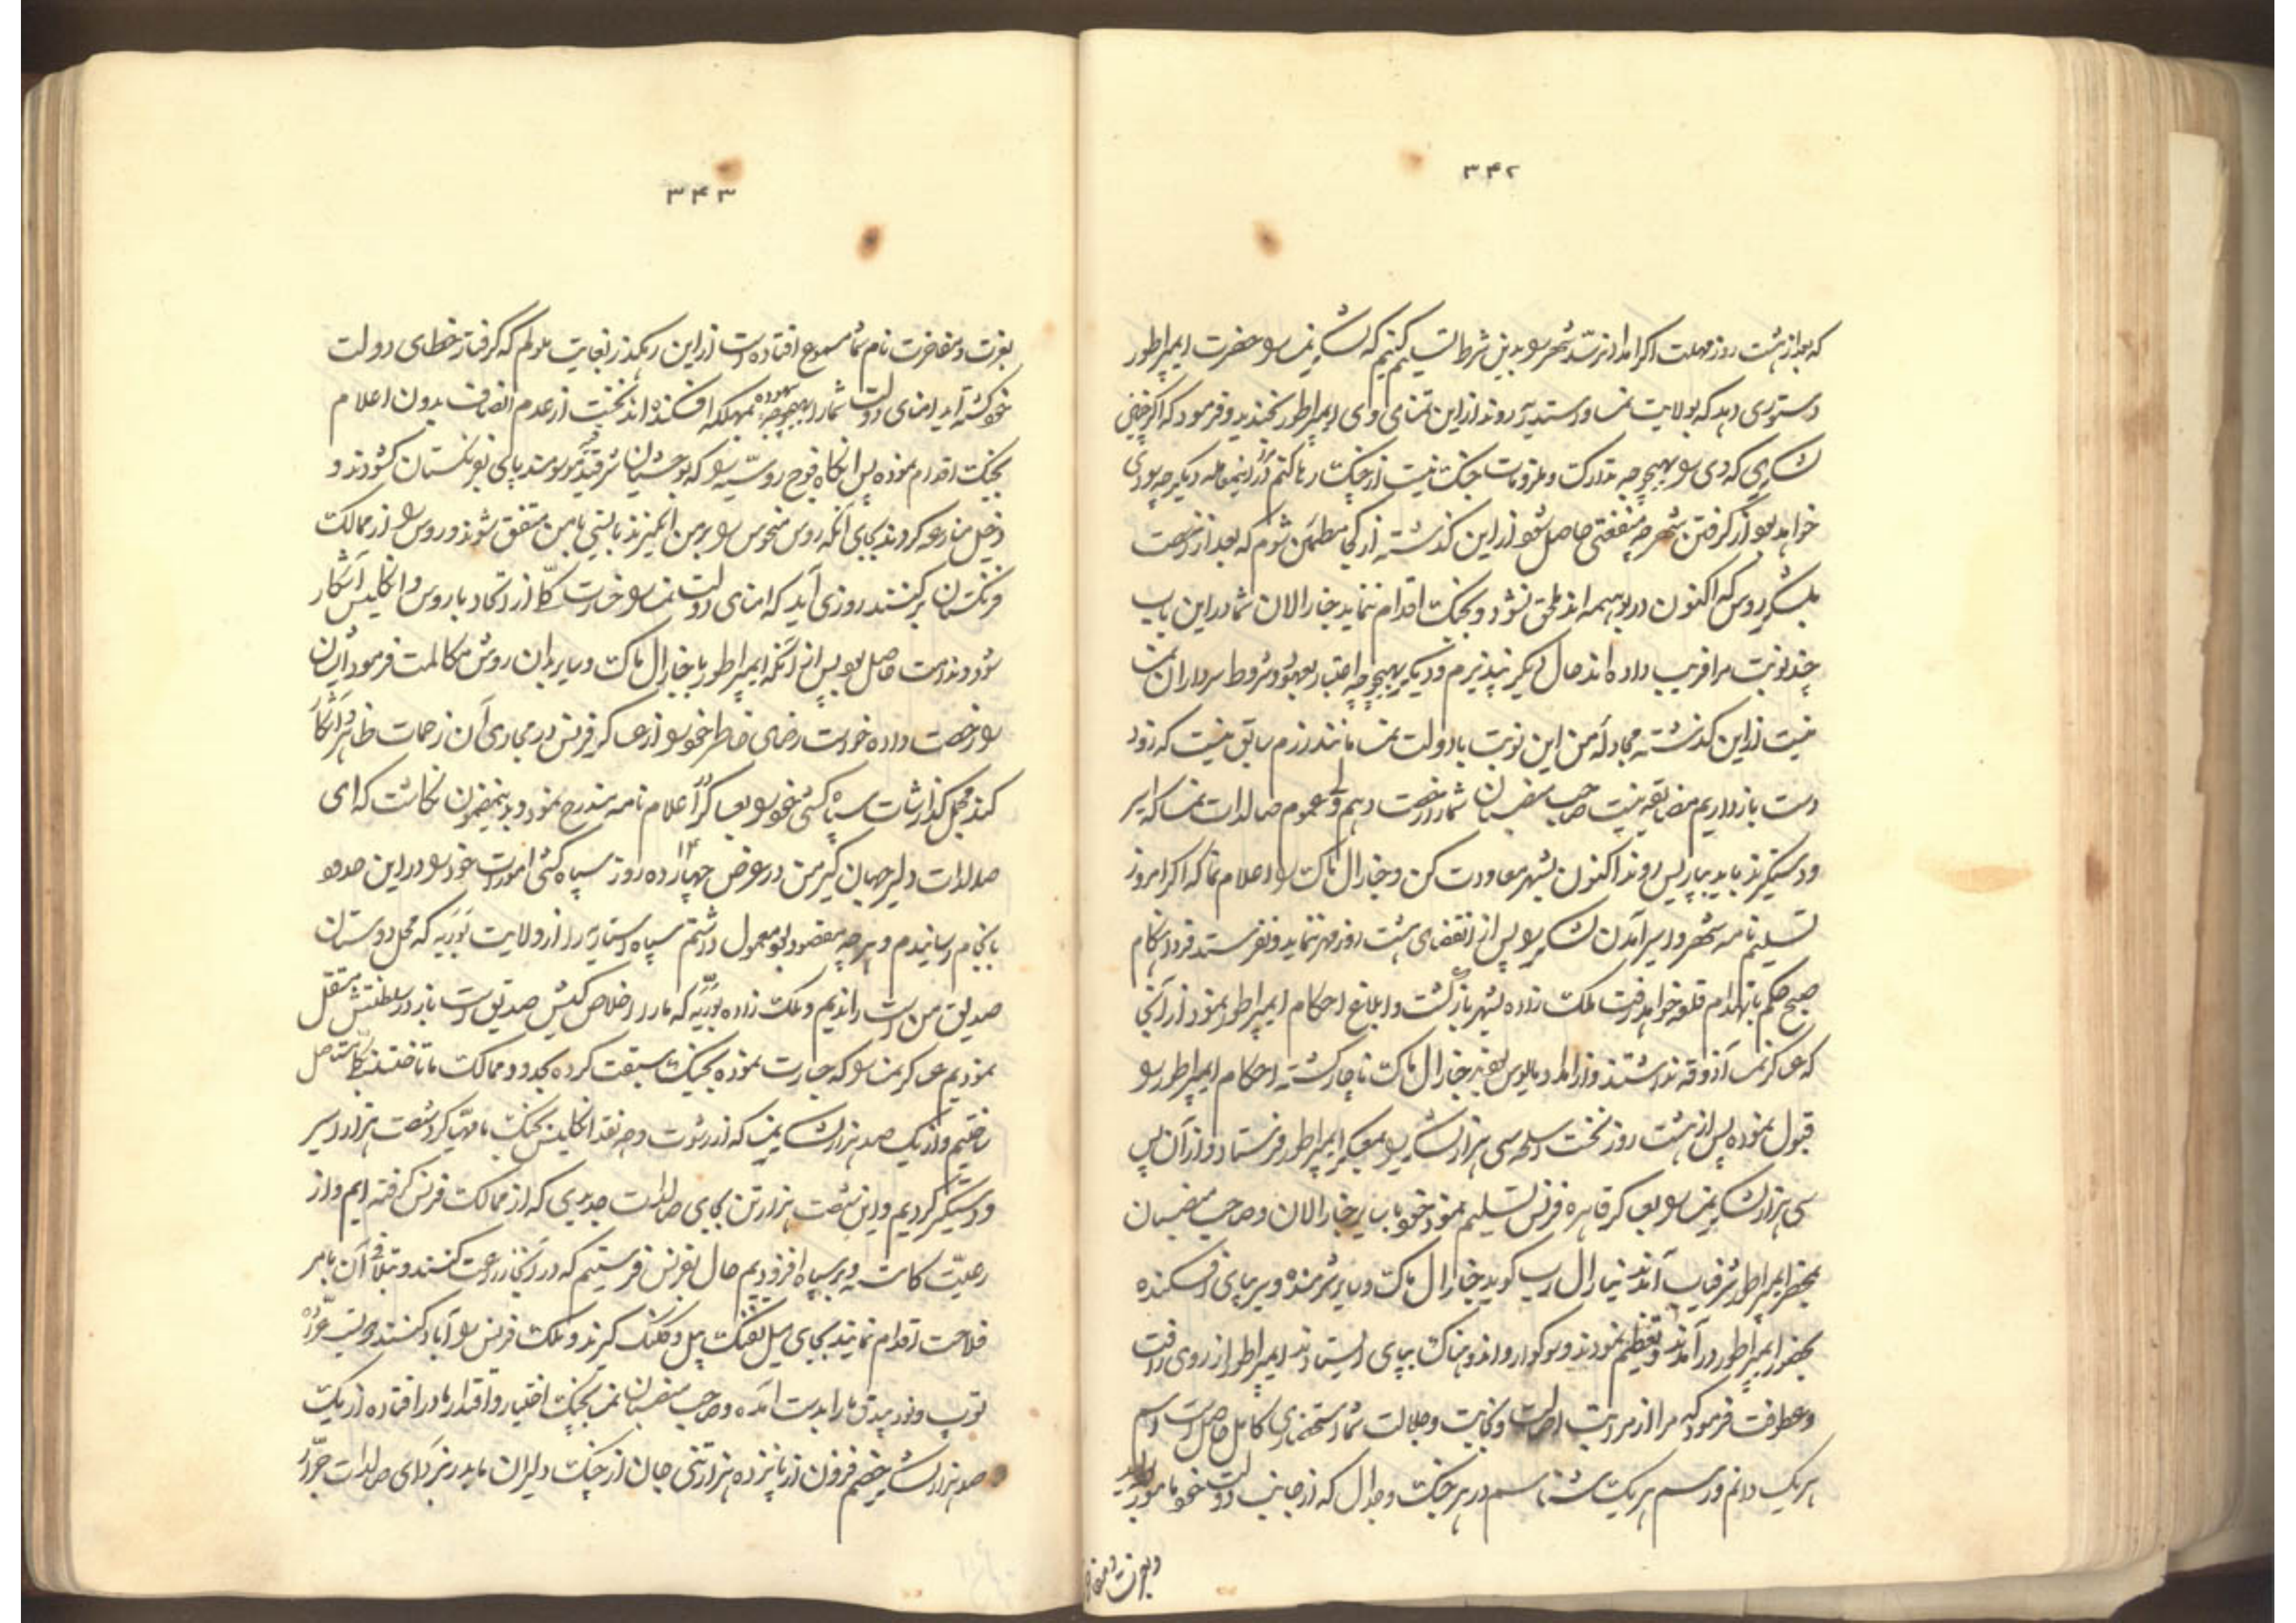 ۳۴۲
که بعد از هشت روز مهلت اگر امداد نرسد شهر را بدین شرط تسلیم کنیم که لشکر نمسا را حضرت ایمپراطور
دستوری دهد که بولایت نمسا و استریه روند از این تمنای وی ایمپراطور بخندید و فرمود که اگر چنین
لشکری که وی را بهیچوجه تدارک و ملزومات جنگ نیست از چنگ رها کنم در اینمعامله دیگر چه سودی
خواهد بود از گرفتن شهر چه منفعتی حاصل شود از این گذشته از کجا مطمئن شوم که بعد از رخصت
بلشکر روس که اکنون در بوهیمه اند ملحق نشود و بجنگ اقدام ننماید جنارالان شما در این باب
چند نوبت مرا فریب داده اند حال دیگر نپذیرم و دیگر بهیچوجه اعتبار بعهود و شروط سرداران نمسا
نیست از این گذشته مجادله من این نوبت با دولت نمسا مانند رزم سابق نیست که زود
دست باز داریم مضایقه نیست صاحب منصبان شما را رخصت دهم ولی عموم صالدات نمسا که اسیر
و دستگیرند باید بپاریس روند اکنون بشهر معاودت کن و جنارال ماک را اعلام نما که اگر امروز
تسلیم نامه شهر و اسیر آمدن لشکر را پس از انقضای هشت روز مهر ننماید و نفرستد فردا هنگام
صبح حکم بانهدام قلعه خواهد رفت ملک زاده بشهر باز گشت و ابلاغ احکام ایمپراطور نمود از آنجا
که عساکر نمسا آذوقه نداشتند و از امداد مایوس بودند جنارال ماک ناچار گشته احکام ایمپراطور را
قبول نموده پس از هشت روز نخست اسلحه سی هزار لشکر را بمعسکر ایمپراطور فرستاد و از آن پس
سی هزار لشکر نمسا را بعساکر قاهره فرنس تسلیم نمود خود با سایر جنارالان و صاحب منصبان
بمحضر ایمپراطور شرفیاب آمدند جنارال رپ گوید جنارال ماک و سایر شرمنده و سر بپای افکنده
بحضور ایمپراطور در آمدند و تعظیم نمودند و سوگوار و اندوهناک بپای ایستادند ایمپراطور از روی رافت
و عطوفت فرمود که مرا از مراتب اصالت و نجابت و جلالت شما استحضاری کامل حاصل است اسم
هر یک دانم و رسم هر یک شناسم در هر جنگ و جدال که از جانب دولت خود مامور بوده اید
و بعزت و مفا
۳۴۳
بعزت و مفاخرت نام شما مسموع افتاده است از این رهگذر بغایت ملولم که گرفتار خطای دولت
خود گشته اید امنای دولت شما را بهیچوجه بیهوده بمهلکه افکنده اند نخست از عدم انصاف بدون اعلام
بجنگ اقدام نموده پس آنگاه فوج روسیه را که بوحشیان شرقیه موسومند پای بفرنگستان گشودند و
دخیل منازعه کردند بجای آنکه روس منحوس را بر من انگیزند بایستی با من متفق شوند و روس را از ممالک
فرنگستان بر کنند روزی آید که امنای دولت نمسا را خسارت کلی از اتحاد با روس و انگلیس آشکار
شود و ندامت حاصل بود پس از آنکه ایمپراطور با جنارال ماک و سایر بدان روش مکالمت فرمود ایشان
را رخصت داده خواست رضای خاطر خود را از عساکر فرنس در مجاری آن زحمات ظاهر و آشکار
کند مجمل گذارشات سپاه کشی خود را بعساکر در اعلام نامه مندرج نمود و بدینمضمون نگاشت که ای
صالدات دلیر جهان گیر من در عرض چهارده ۱۴ روز سپاه کشی امورات خود را در این حدود
بانجام رسانیدم و هر چه مقصود بود معمول داشتم سپاه استریه را از ولایت بوریه که محل دوستان
صدیق من است راندیم و ملک زاده بوریه که ما را اخلاص کیش صدیق است باز در سلطنتش مستقل
نمودیم عساکر نمسا را که جسارت نموده بجنگ سبقت کرده بحدود ممالک ما تاختند بکلی مستاصل
ساختیم و از یک صد هزار لشکر نمسا که از رشوت و وجه نقد انگلیس بجنگ ما مهیا کرد شصت هزار اسیر
و دستگیر کردیم و این شصت هزار تن بجای صالدات جدیدی که از ممالک فرنس گرفته ایم و از
رعیت کاسته و بر سپاه افزودیم حال بفرنس فرستیم که در آنجا زراعت کنند و بتلافی آن بامر
فلاحت اقدام نمایند بجای میل تفنگ بیل و کلنگ گیرند و ملک فرنس را آباد کنند دویست عراده
توپ و نود بیدق ما را بدست آمده و صاحب منصبان نمسا بجنگ اختیار و اقتدار ما در افتاده از یک
صد هزار لشکر خصم فزون از پانزده هزار تنی جان از چنگ دلیران ما بدر نبرد ای صالدات جرار